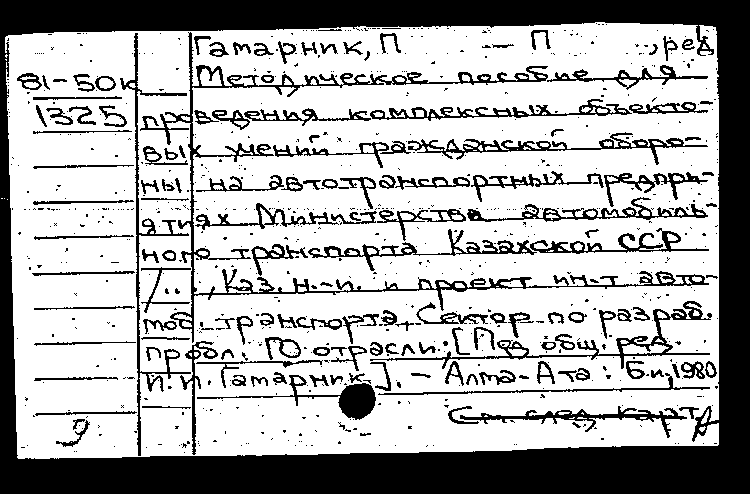 Гамарник, П — П , ред
81-50к Методическое пособие для
1325 проведения комплексных объекто-
вых учений гражданской оборо-
ны на автотранспортных предпри-
ятиях Министерства автомобиль-
ного транспорта Казахской ССР
/..., Каз. н.-и. и проект ин-т авто-
моб. транспорта, Сектор по разраб.
пробл. ГО отрасли; [Под общ. ред.
П. П. Гамарник]. — Алма-Ата : Б.и., 1980
См. след. карт
9